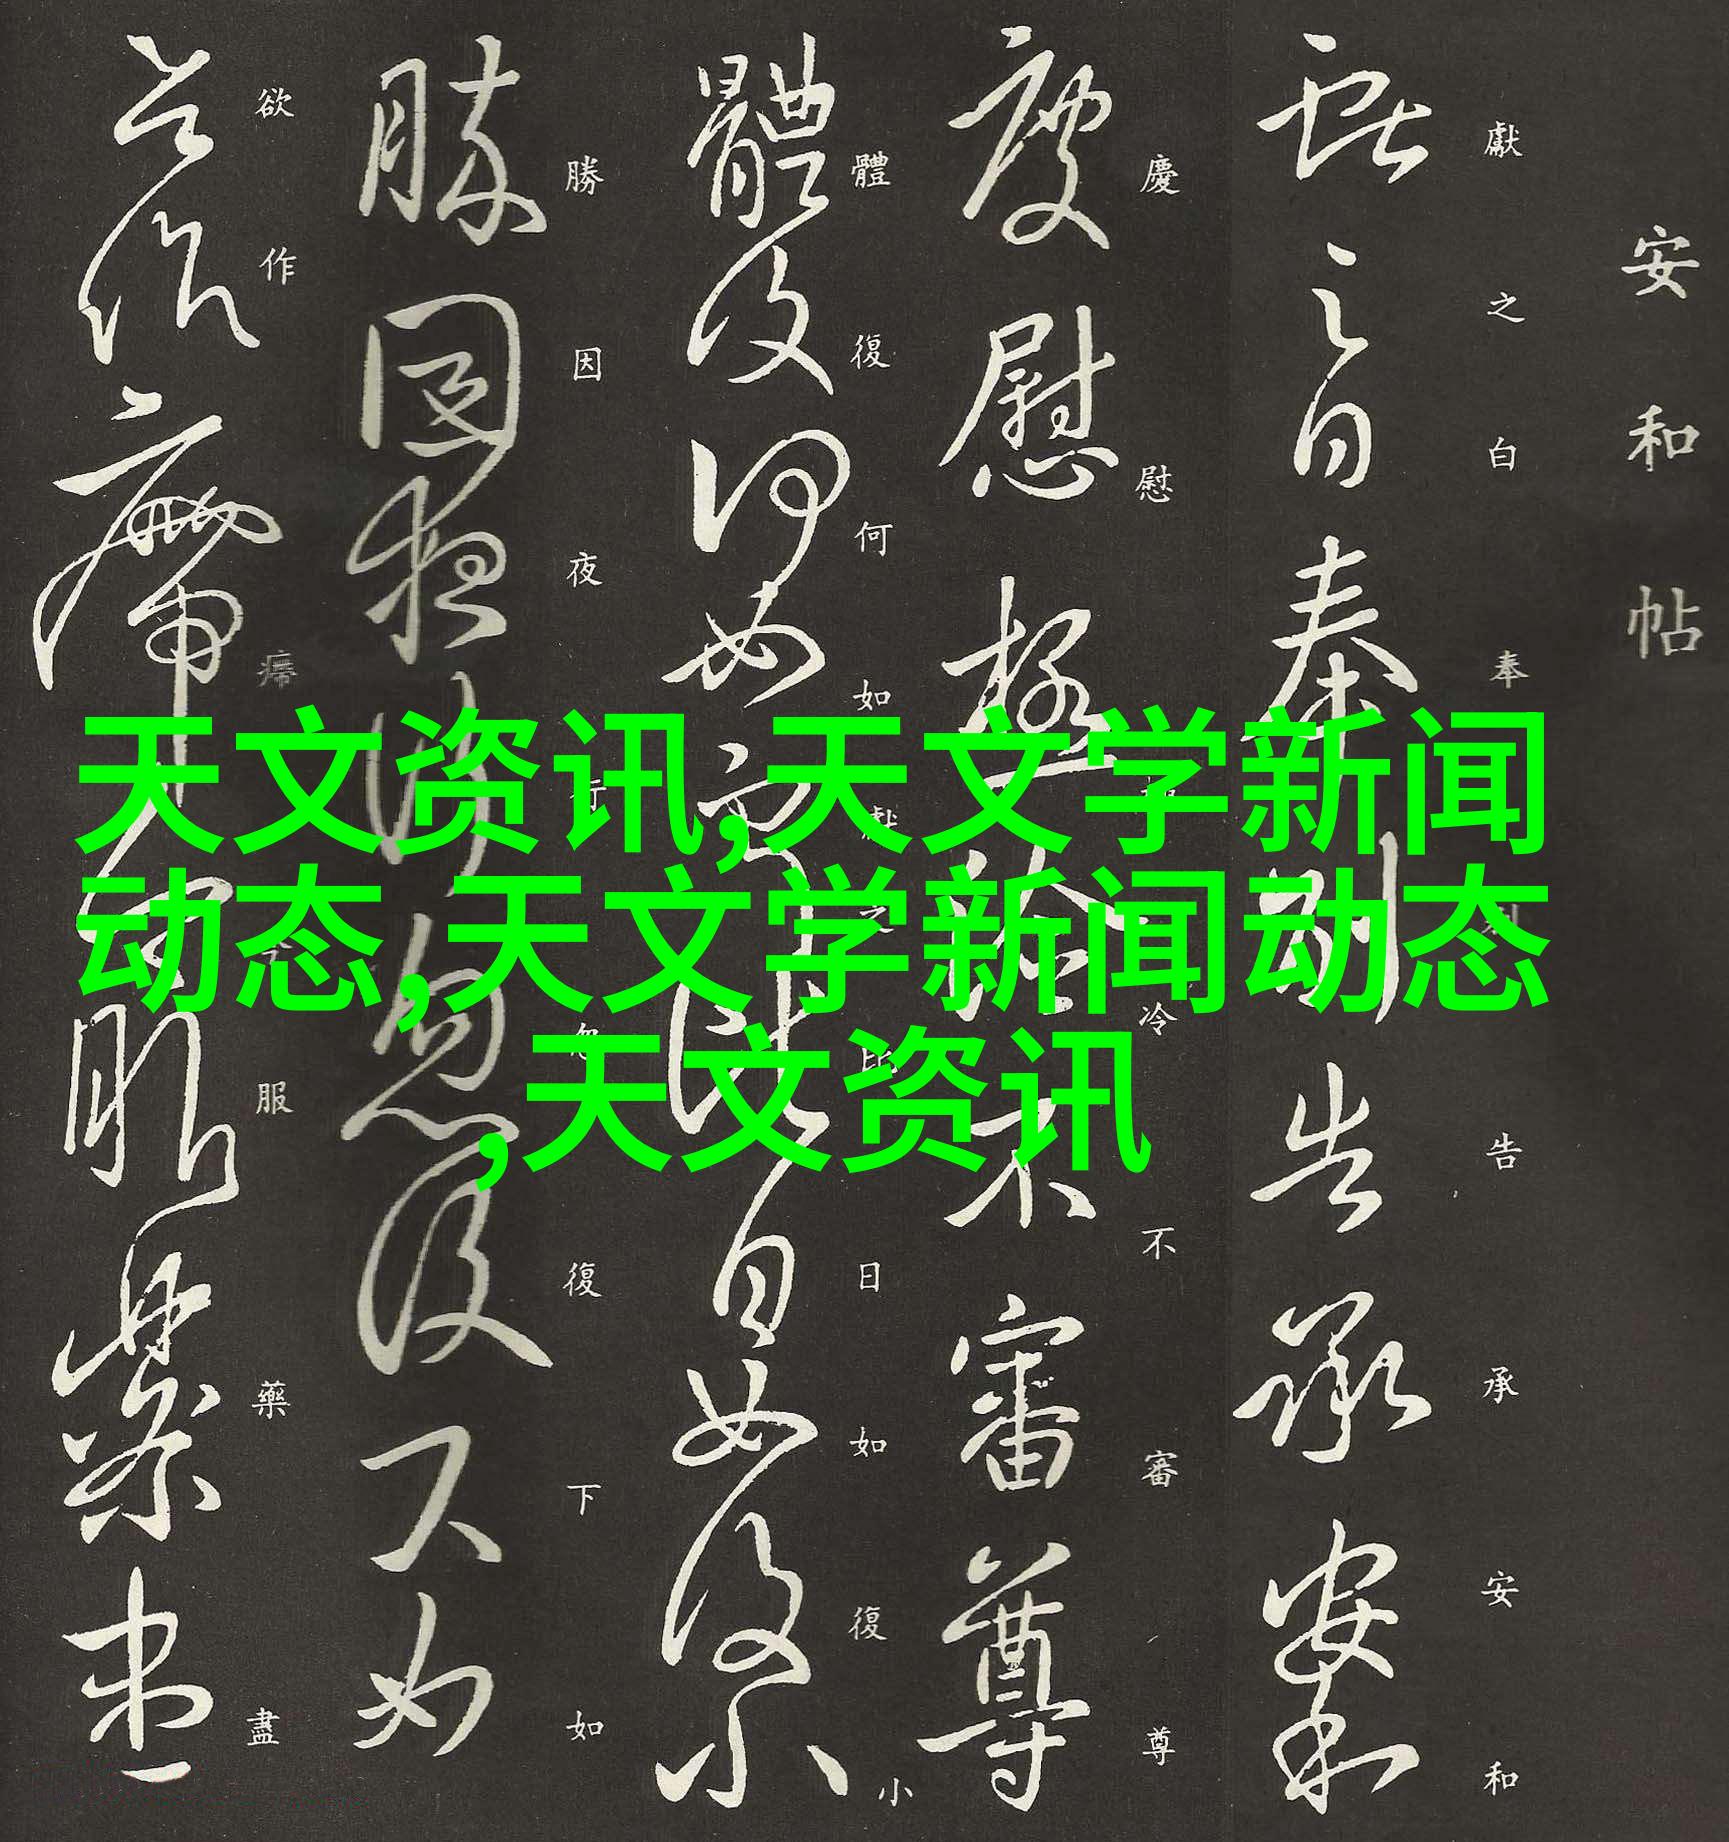 安和帖
獻之白奉別告承安和
慶慰極冷不審尊
體復何如獻之比日如復小
勝因夜行忽復下如
欲作今服藥盡
天文资讯,天文学新闻
动态,天文学新闻动态
,天文资讯